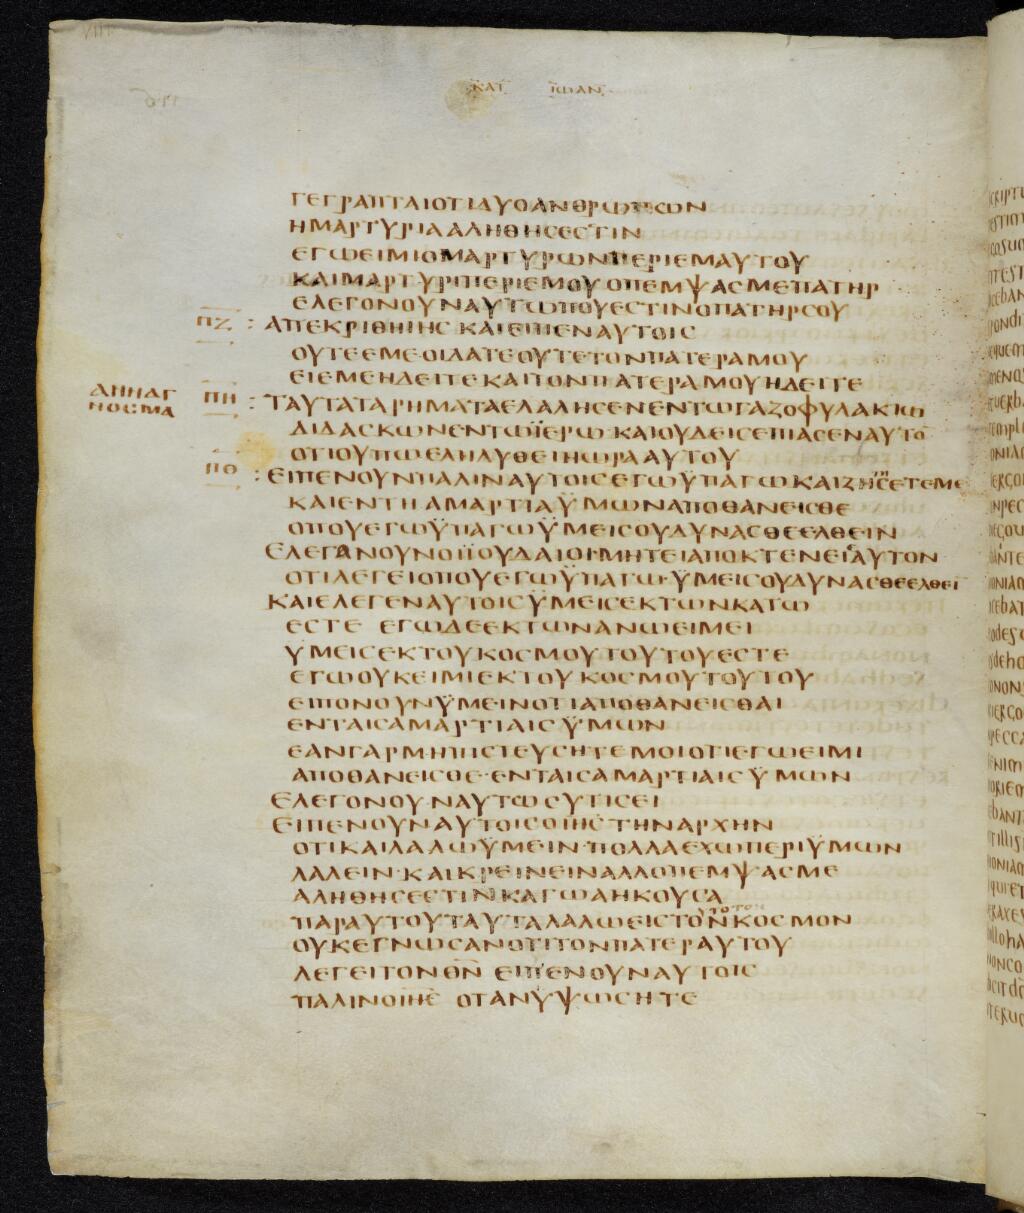 ΚΑΤ ΙΩΑΝ
ΓΕΓΡΑΠΤΑΙΟΤΙΔΥΟΑΝΘΡΩΠΩΝ
ΗΜΑΡΤΥΡΙΑΑΛΗΘΗΣΕΣΤΙΝ
ΕΓΩΕΙΜΙΟΜΑΡΤΥΡΩΝΠΕΡΙΕΜΑΥΤΟΥ
ΚΑΙΜΑΡΤΥΡΙΠΕΡΙΕΜΟΥΟΠΕΜΨΑΣΜΕΠΑΤΗΡ
ΕΛΕΓΟΝΟΥΝΑΥΤΩΠΟΥΕΣΤΙΝΟΠΑΤΗΡΣΟΥ
ΠΖ : ΑΠΕΚΡΙΘΗΙΗΣ ΚΑΙΕΙΠΕΝΑΥΤΟΙΣ
ΟΥΤΕΕΜΕΟΙΔΑΤΕΟΥΤΕΤΟΝΠΑΤΕΡΑΜΟΥ
ΕΙΕΜΕΗΔΕΙΤΕΚΑΙΤΟΝΠΑΤΕΡΑΜΟΥΗΔΕΙΤΕ
ΑΝΝΑΓ
ΝΟΣΜΑ
ΠΗ : ΤΑΥΤΑΤΑΡΗΜΑΤΑΕΛΑΛΗΣΕΝΕΝΤΩΓΑΖΟΦΥΛΑΚΙΩ
ΔΙΔΑΣΚΩΝΕΝΤΩΪΕΡΩ·ΚΑΙΟΥΔΕΙΣΕΠΙΑΣΕΝΑΥΤΟ
ΟΤΙΟΥΠΩΕΛΗΛΥΘΕΙΗΩΡΑΑΥΤΟΥ
ΠΘ : ΕΙΠΕΝΟΥΝΠΑΛΙΝΑΥΤΟΙΣΕΓΩΫΠΑΓΩΚΑΙΖΗΣΕΤΕΜΕ
ΚΑΙΕΝΤΗΑΜΑΡΤΙΑΫΜΩΝΑΠΟΘΑΝΕΙΣΘΕ
ΟΠΟΥΕΓΩΫΠΑΓΩΫΜΕΙΣΟΥΔΥΝΑΣΘΕΕΛΘΕΙΝ
ΕΛΕΓΑΝΟΥΝΟΪΙΟΥΔΑΙΟΙ·ΜΗΤΕΙΑΠΟΚΤΕΝΕΙΑΥΤΟΝ
ΟΤΙΛΕΓΕΙΟΠΟΥΕΓΩΫΠΑΓΩ·ΫΜΕΙΣΟΥΔΥΝΑΣΘΕΕΛΘΕΙ
ΚΑΙΕΛΕΓΕΝΑΥΤΟΙΣΫΜΕΙΣΕΚΤΩΝΚΑΤΩ
ΕΣΤΕ ΕΓΩΔΕΕΚΤΩΝΑΝΩΕΙΜΕΙ
ΥΜΕΙΣΕΚΤΟΥΚΟΣΜΟΥΤΟΥΤΟΥΕΣΤΕ
ΕΓΩΟΥΚΕΙΜΙΕΚΤΟΥΚΟΣΜΟΥΤΟΥΤΟΥ
ΕΙΠΟΝΟΥΝΫΜΕΙΝΟΤΙΑΠΟΘΑΝΕΙΣΘΑΙ
ΕΝΤΑΙΣΑΜΑΡΤΙΑΙΣΫΜΩΝ
ΕΑΝΓΑΡΜΗΠΙΣΤΕΥΣΗΤΕΜΟΙΟΤΙΕΓΩΕΙΜΙ
ΑΠΟΘΑΝΕΙΣΘΕ·ΕΝΤΑΙΣΑΜΑΡΤΙΑΙΣΫΜΩΝ
ΕΛΕΓΟΝΟΥΝΑΥΤΩΣΥΤΙΣΕΙ
ΕΙΠΕΝΟΥΝΑΥΤΟΙΣΟΙΗΣΤΗΝΑΡΧΗΝ
ΟΤΙΚΑΙΛΑΛΩΫΜΕΙΝ·ΠΟΛΛΑΕΧΩΠΕΡΙΫΜΩΝ
ΛΑΛΕΙΝ·ΚΑΙΚΡΕΙΝΕΙΝΑΛΛΟΠΕΜΨΑΣΜΕ
ΑΛΗΘΗΣΕΣΤΙΝΚΑΓΩΑΗΚΟΥΣΑ
ΠΑΡΑΥΤΟΥΤΑΥΤΑΛΑΛΩΕΙΣΤΟΝΚΟΣΜΟΝ
ΟΥΚΕΓΝΩΣΑΝΟΤΙΤΟΝΠΑΤΕΡΑΥΤΟΥ
ΛΕΓΕΙΤΟΝΘΝ ΕΙΠΕΝΟΥΝΑΥΤΟΙΣ
ΠΑΛΙΝΟΙΗΣ ΟΤΑΝΥΨΩΣΗΤΕ